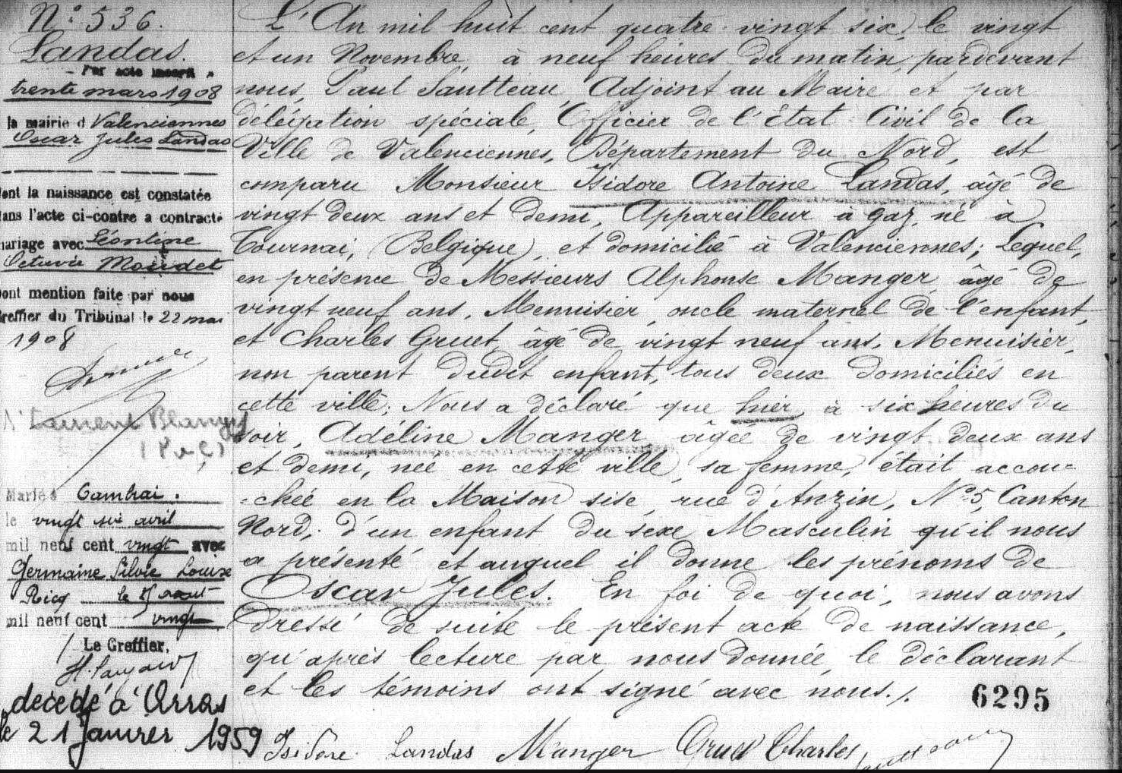 N° 536.
Landas.
Par acte inscrit
trente mars 1908
la mairie d Valenciennes
Oscar Jules Landas
dont la naissance est constatée
dans l'acte ci-contre a contracté
mariage avec Léontine
Octavie Moudet
Dont mention faite par nous
Greffier du Tribunal le 22 mai
1908
Laurent Blangy
(P. de C)
Marié à Cambrai.
le vingt six avril
mil neuf cent vingt avec
Germaine Silvie Louise
Ricq le août
mil neuf cent vingt
Le Greffier,
décédé à Arras
le 21 Janvier 1959
L'An mil huit cent quatre vingt six, le vingt
et un Novembre à neuf heures du matin, pardevant
nous, Paul Sautteau, Adjoint au Maire et par
délégation spéciale, Officier de l'Etat Civil de la
Ville de Valenciennes, Département du Nord, est
comparu Monsieur Isidore Antoine Landas, âgé de
vingt deux ans et demi, Appareilleur à gaz, né à
Tournai, (Belgique), et domicilié à Valenciennes; Lequel,
en présence de Messieurs Alphonse Manger, âgé de
vingt neuf ans, Menuisier, oncle maternel de l'enfant,
et Charles Gruet, âgé de vingt neuf ans, Menuisier,
non parent dudit enfant, tous deux domiciliés en
cette ville; Nous a déclaré que hier, à six heures du
soir, Adéline Manger, âgée de vingt deux ans
et demi, née en cette ville, sa femme, était accou-
-chée en la Maison sise, rue d'Anzin, N° 5, Canton
Nord; d'un enfant du sexe Masculin qu'il nous
a présenté et auquel il donne les prénoms de
Oscar Jules. En foi de quoi, nous avons
dressé de suite le présent acte de naissance,
qu'après lecture par nous donnée, le déclarant
et les témoins ont signé avec nous./.
6295
Isidore Landas Manger Gruet Charles